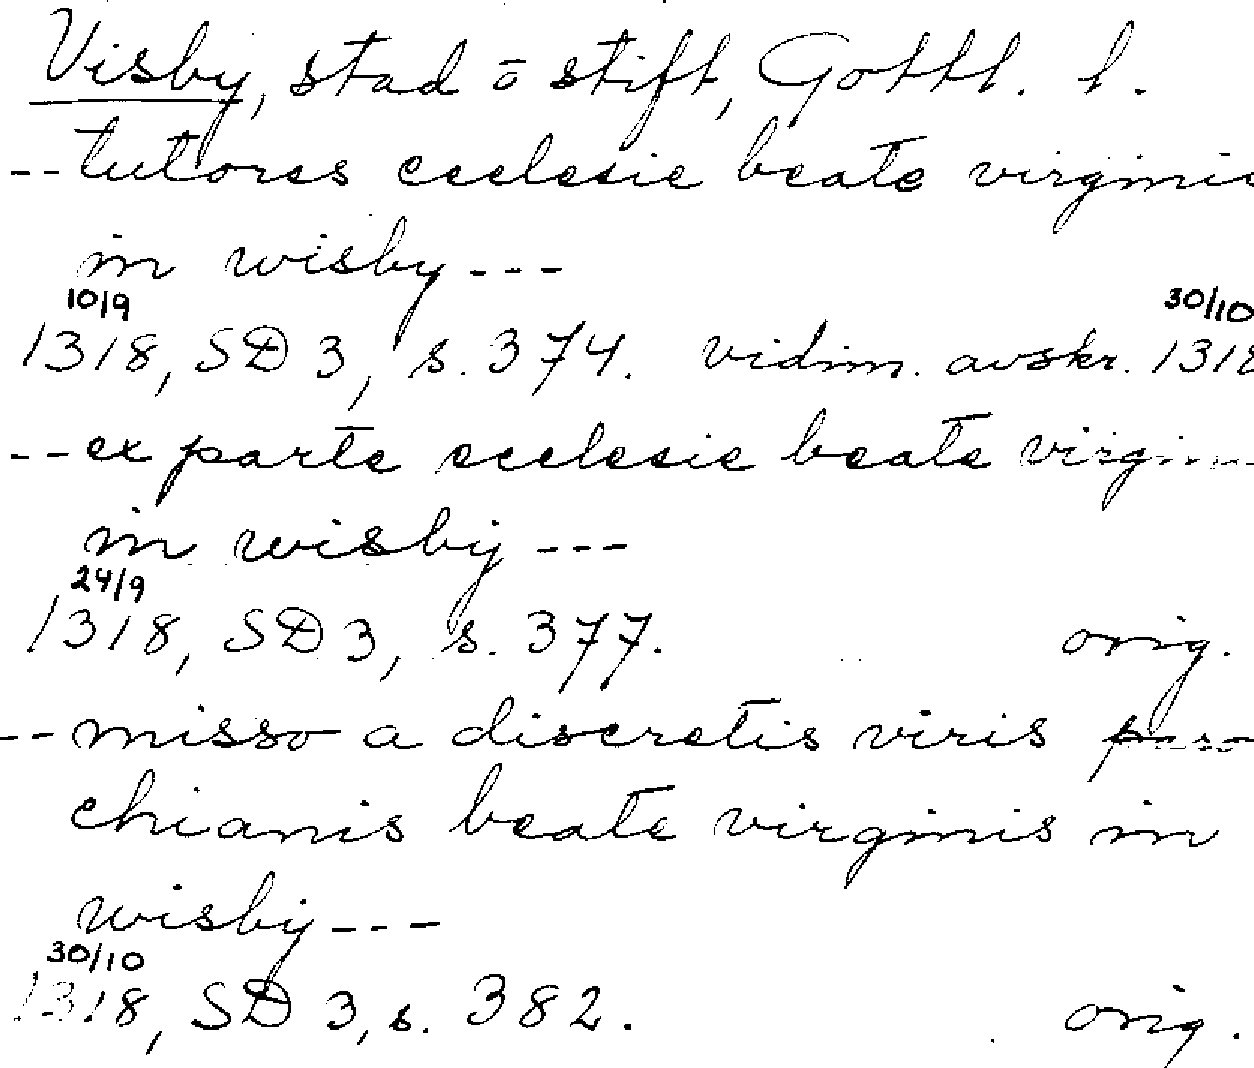 Visby, stad o stift, Gottl. l.
-- tutores ecclesie beate virginis
in wisby ---
10/9 30/10
1318, SD 3, s. 374. vidim. avskr. 1318
-- ex parte ecclesie beate virginis
in wisby ---
24/9
1318, SD 3, s. 377. orig.
-- misso a discretis viris paro
chianis beate virginis in
wisby ---
30/10
1318, SD 3, s. 382. orig.